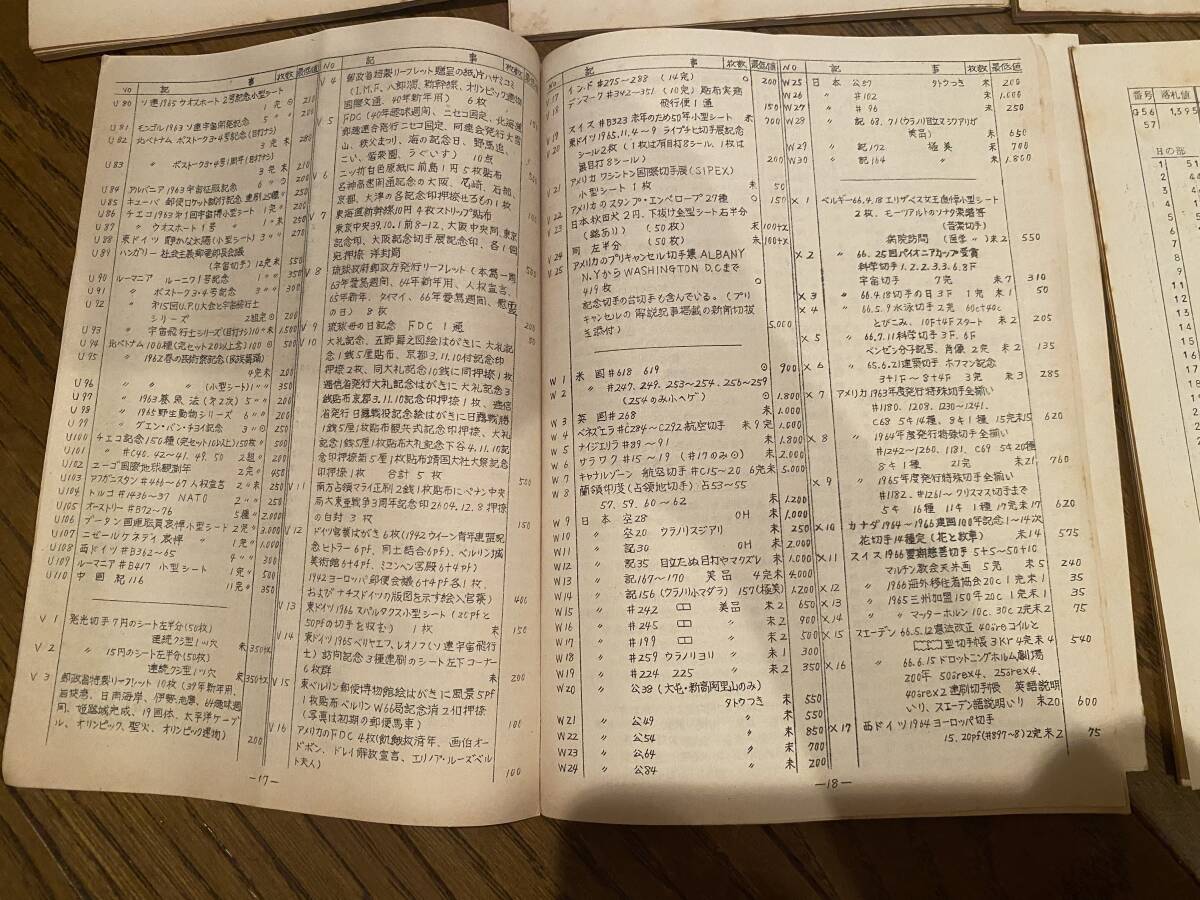 NO 記 事 枚数 最低値
U80 ソ連1965ウオスホート2号記念小型シート
1完 ⊙ 210
U81 モンゴル1963ソ連宇宙開発記念 5〃 〃
U82 北ベトナム ボストーク3・4号記念(目打ナシ)
3完 未 280
U83 〃 ボストーク3・4号1周年(目打ナシ)
3完 未 210
U84 アルバニア1963宇宙征服記念 6〃
U85 キューバ 郵便ロケット試行記念 連刷25種〃 250
U86 チェコ1963第1回宇宙博小型シート 1完〃 200
U87 〃 ウオスホート1号 〃 1〃 未 250
U88 東ドイツ 静かな太陽(小型シート) 3〃〃 270
U89 ハンガリー 社会主義郵電部長会議
(宇宙切手) 12完未 550
U90 ルーマニア ルーニク7号記念 1〃〃 350
U91 〃 ボストーク3・4号記念 3〃〃 300
U92 〃 第15回U.P.U大会と宇宙飛行士
シリーズ 2組完⊙ 200
U93 〃 宇宙飛行士シリーズ(目打ナシ)10〃未 1,500
U94 北ベトナム100種(完セット20以上含)100⊙ 500
U95 〃 1962春の芸術祭記念(民族舞踊)
4完未 200
U96 〃 〃 〃 (小型シート)1〃〃 350
U97 〃 1963暴民法(第2次) 5〃〃 200
U98 〃 1965野生動物シリーズ 6〃〃 200
U99 〃 グエン・バン・チヨイ記念 3〃⊙ 250
U100 チェコ記念150種(完セット10以上)150枚〃 500
U101 〃 #C40.~42.41.49.50 2組〃 200
U102 ユーゴ国際地球観測年 2完〃 450
U103 アフガニスタン#466~67人権宣言 2〃未 250
U104 トルコ #1436~37 NATO 2〃〃 250
U105 オーストリー #B72~76 5種〃 2,000
U106 ブータン国連職員哀悼小型シート2完〃 3,000
U107 ニゼールケネディ哀悼 〃 1完〃 1,000
U108 西ドイツ#B362~65 4〃〃 300
U109 ルーマニア#B417 小型シート 1完〃 500
U110 中国 紀116 11完〃 350
V1 発光切手7円のシート左半分(50枚)
連続クジ型1ツ穴 未 350+x
V2 〃 15円のシート左半分(50枚)
連続クジ型1ツ穴 未 350+x
V3 郵政省特製リーフレット10枚(39年新年用、
首旋急、日南海岸、伊勢志摩、64趣味週
間、姫路城完成、19国体、太平洋ケーブ
ル、オリンピック、聖火、オリンピック建物) 200
NO 記 事 枚数 最低値
V4 郵政省特製リーフレット贈呈の紙片ハサミコミ
(I.M.F、八郎潟、新幹線、オリンピック建物
国際文通、40年新年用) 6枚
V5 FDC(40年趣味週間、ニセコ固定、北海道
郵趣連合発行ニセコ固定、同連合発行大雪
山、秩父まつり、海の記念日、野馬追、
こい、菊楽園、うぐいす) 10点
V6 ニッ折白色原紙に前島1円5枚貼布 500
名神高速開通記念の大阪、尼崎、石部、
京都、大津の各記念印押捺せるもの1枚
V7 東海道新幹線10円4枚ストリップ貼布
東京中央39.10.1前8-12、大阪中央同、東京
記念印、大阪記念切手展記念印、各1個
宛押捺洋封筒
V8 琉球政府郵政庁発行リーフレット(本第一周
63年愛鳥週間、64年新年用、人権宣言、
65年新年、タイマイ、66年愛鳥週間、慰霊
の日) 8枚
V9 琉球母の日記念 FDC 1通 200
V10 大礼記念、五節舞之図絵はがきに大礼記
念1銭5厘貼布、京都3.11.10付記念印
押捺2枚、同大礼記念10銭に同押捺1枚、
逓信省発行大礼記念はがきに大礼記念3
銭貼布東京3.11.10記念印押捺1枚、逓信
省発行日露戦役記念絵はがきに日露戦勝
1銭5厘1枚貼布観兵式記念印押捺、大礼
記念1銭5厘1枚貼布大礼記念下谷4.11.10記
念印押捺菊5厘1枚貼布靖国大社大祭記念
印押捺1枚 合計5枚 500
V11 南方占領マライ正刷2銭1枚貼布にペナン中央
局大東亜戦争3周年記念印2604.12.8押捺
の白封 3枚 150
V12 ドイツ官葉はがき6枚(1942ウイーン青年連盟記
念ヒトラー6pf、同土結合6Pf)、ベルリン1城
美術館6+4pf、ミュンヘン宮殿6+4pf)
1942ヨーロッパ郵便会議6+4pf各1枚、
およびナチスドイツの版図を示す絵入官葉) 400
V13 東ドイツ1966スパルタクス小型シート(20pfと
50pfの切手を収む) 1枚 未 150
V14 東ドイツ1965ベリヤエフ、レオノフ(ソ連宇宙飛行
士)訪問記念3種連刷のシート左下コーナー
6枚群 未 200
V15 東ベルリン郵便博物館絵はがきに風景5pf
1枚貼布ベルリンW66局記念消2個押捺
(写真は初期の郵便馬車) 100
V16 アメリカのFDC4枚(飢餓救済年、画伯オー
ドボン、ドレイ解放宣言、エリノア・ルーズベル
ト夫人) 100
—17—
記 事 枚数 最低値
V17 インド#275~288 (14完) ○ 200
V18 デンマーク#342~351 (10完)貼布実逓
飛行便1通 150
V19 スイス#B323老年のため50年小型シート 未 700
V20 東ドイツ1965.11.4~9 ライプチヒ切手展記念
シール2枚(1枚は有目打8シール、1枚は
無目打8シール) 200
V21 アメリカワシントン国際切手展(SIPEX)
小型シート1枚 未 50
V22 アメリカのスタンプ・エンベロープ27種 ○ 150
V23 日本秋田犬2円、下抜け全型シート右半分
(銘あり) (50枚) 未 100+x
V24 同 左半分 (50枚) 未 100+x
V25 アメリカのプリキャンセル切手壊ALBANY
N.YからWASHINGTON D.Cまで
419枚 ○
記念切手の台切手も含んでいる。(プリ
キャンセルの解説記事掲載の新聞切抜
き添付) 5,000
W1 米国#618 619 ⊙ 900
W2 〃 #247.249.253~254.256~259
(254のみ小ヘゲ) ⊙ 1,800
W3 英国#268 未 1,000
W4 ベネズエラ#C284~C292航空切手 未9完 1,600
W5 ナイジエリラ#89~91 未 1,800
W6 サラワク#15~19 (#17のみ⊙) 未 2,000
W7 キャナルゾーン 航空切手#C15~20 6完未 5,000
W8 蘭領印度(占領地切手)占53~55
57.59.60~62 未 1,200
W9 日本 空28 OH 未 1,000
W10 〃 空20 ウラノリスジアリ 未 250
W11 〃 記30 OH 未 2,000
W12 〃 記35 目立たぬ目打やマクズレ 未 1,000
W13 〃 #167~170 美品 4完未 4,000
W14 〃 記156(クラノリ小マダラ) 157(極美) 1,200
W15 〃 #242 美品 未2 650
W16 〃 #245 〃 未2 900
W17 〃 #199 〃 未2 500
W18 〃 #259 ウラノリヨリ 未1 300
W19 〃 #224 225 未2 350
W20 〃 公38(大屯・新高阿里山のみ)
タトウつき 未 550
W21 〃 公49 〃 未 550
W22 〃 公54 〃 未 850
W23 〃 公64 〃 未 700
W24 〃 公84 〃 未 200
NO 記 事 枚数 最低値
W25 日本 公67 タトウつき 未 200
W26 〃 #102 未 1,000
W27 〃 #96 未 250
W28 〃 記68.71(ウラノリ目立ヌシアリガ
美品) 未 650
W29 〃 記172 極美 未 700
W30 〃 記164 〃 未 1,800
X1 ベルギー66.4.18エリザベス女王追悼小型シート
2枚、モーツアルトのソナタ楽譜等
(音楽切手)
病院訪問(医学〃)未2 550
X2 〃 66.25回パイオニアカップ受賞
科学切手1.2.2.3.3.6.8F
宇宙切手 7完 未7 310
X3 〃 66.4.18切手の日3F 1完 未1 50
X4 〃 66.5.9水泳切手2完 60c+40c
とびこみ、10F+4Fスタート 未2 205
X5 〃 66.7.11科学切手3F、6F
ベンゼン分子記号、肖像2完 未2 135
X6 〃 65.6.21建築切手ホフマン記念
3+1F~8+4F 3完 未3 285
X7 アメリカ1963年度発行特殊切手全揃い
#1180.1208.1230~1241.
C68 54 14種、8キ1種 15完未15 620
X8 〃 1964年度発行特殊切手全揃い
#1242~1260.1181.C69 54 20種
8キ1種 21完 未21 760
X9 〃 1965年度発行特殊切手全揃い
#1182.#1261~クリスマス切手まで
54 16種 11キ1種17完未17 620
X10 カナダ1964~1966建国100年記念1~14次
花切手14種完(花と紋章) 未14 575
X11 スイス1966夏期慈善切手5+5~50+10
マルチン教会天井画5完 未5 240
X12 〃 1966海外移住者協会20c 1完未1 35
X13 〃 1965三州加盟150年20c 1完未1 35
X14 〃 〃 マッターホルン10c.30c 2完未2 75
X15 スエーデン66.5.12憲法改正40öreコイルと
型切手帳3Kr4完未4 540
X16 〃 66.6.15ドロットニングホルム劇場
200年 50öre×4、25öre×4、
40öre×2連刷切手帳 英語説明
いり、スエーデン語説明いり 未20 600
X17 西ドイツ1964ヨーロッパ切手
15.20pf(#897~8)2完未2 75
—18—
番号 落札値
G56 1,395
57
Hの部
1
2
3
4
5